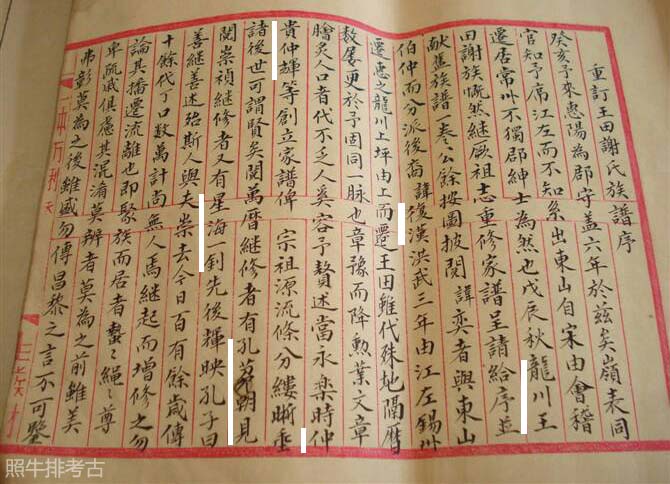 重訂王田謝氏族譜序
癸亥予來惠陽為郡守蓋六年於茲矣嶺表同
官知予席江左而不知系出東山自宋由會稽
遷居常州不獨郡紳士為然也戊辰秋龍川王
田謝族慨然継厥祖志重修家譜呈請給序並
献舊族譜一卷公餘按圖披閱諱奕者與東山
伯仲而分派後裔諱後漢洪武三年由江左錫州
遷惠之龍川上坪由上而遷王田雖代殊地隔曆
数屡更於予固同一脉也章豫而降勲業文章
膾炙人口者代不乏人奚容予贅述當永楽時仲
貴仲輝等創立家譜俾宗祖源流條分縷晰垂
諸後世可謂賢矣閱萬曆継修者有孔朝見
閱崇禎継修者又有星海一釗先後輝映孔子曰
善継善述殆斯人與夫崇去今日百有餘歲傳
十餘代丁口数萬計尚無人焉継起而增修之勿
論其播遷流離也即聚族而居者蟄々繩々尊
卑疏戚俱慮其混淆莫辨者莫為之前雖美
弗彰莫為之後雖盛勿傳昌黎之言亦可鑒
照牛排考古